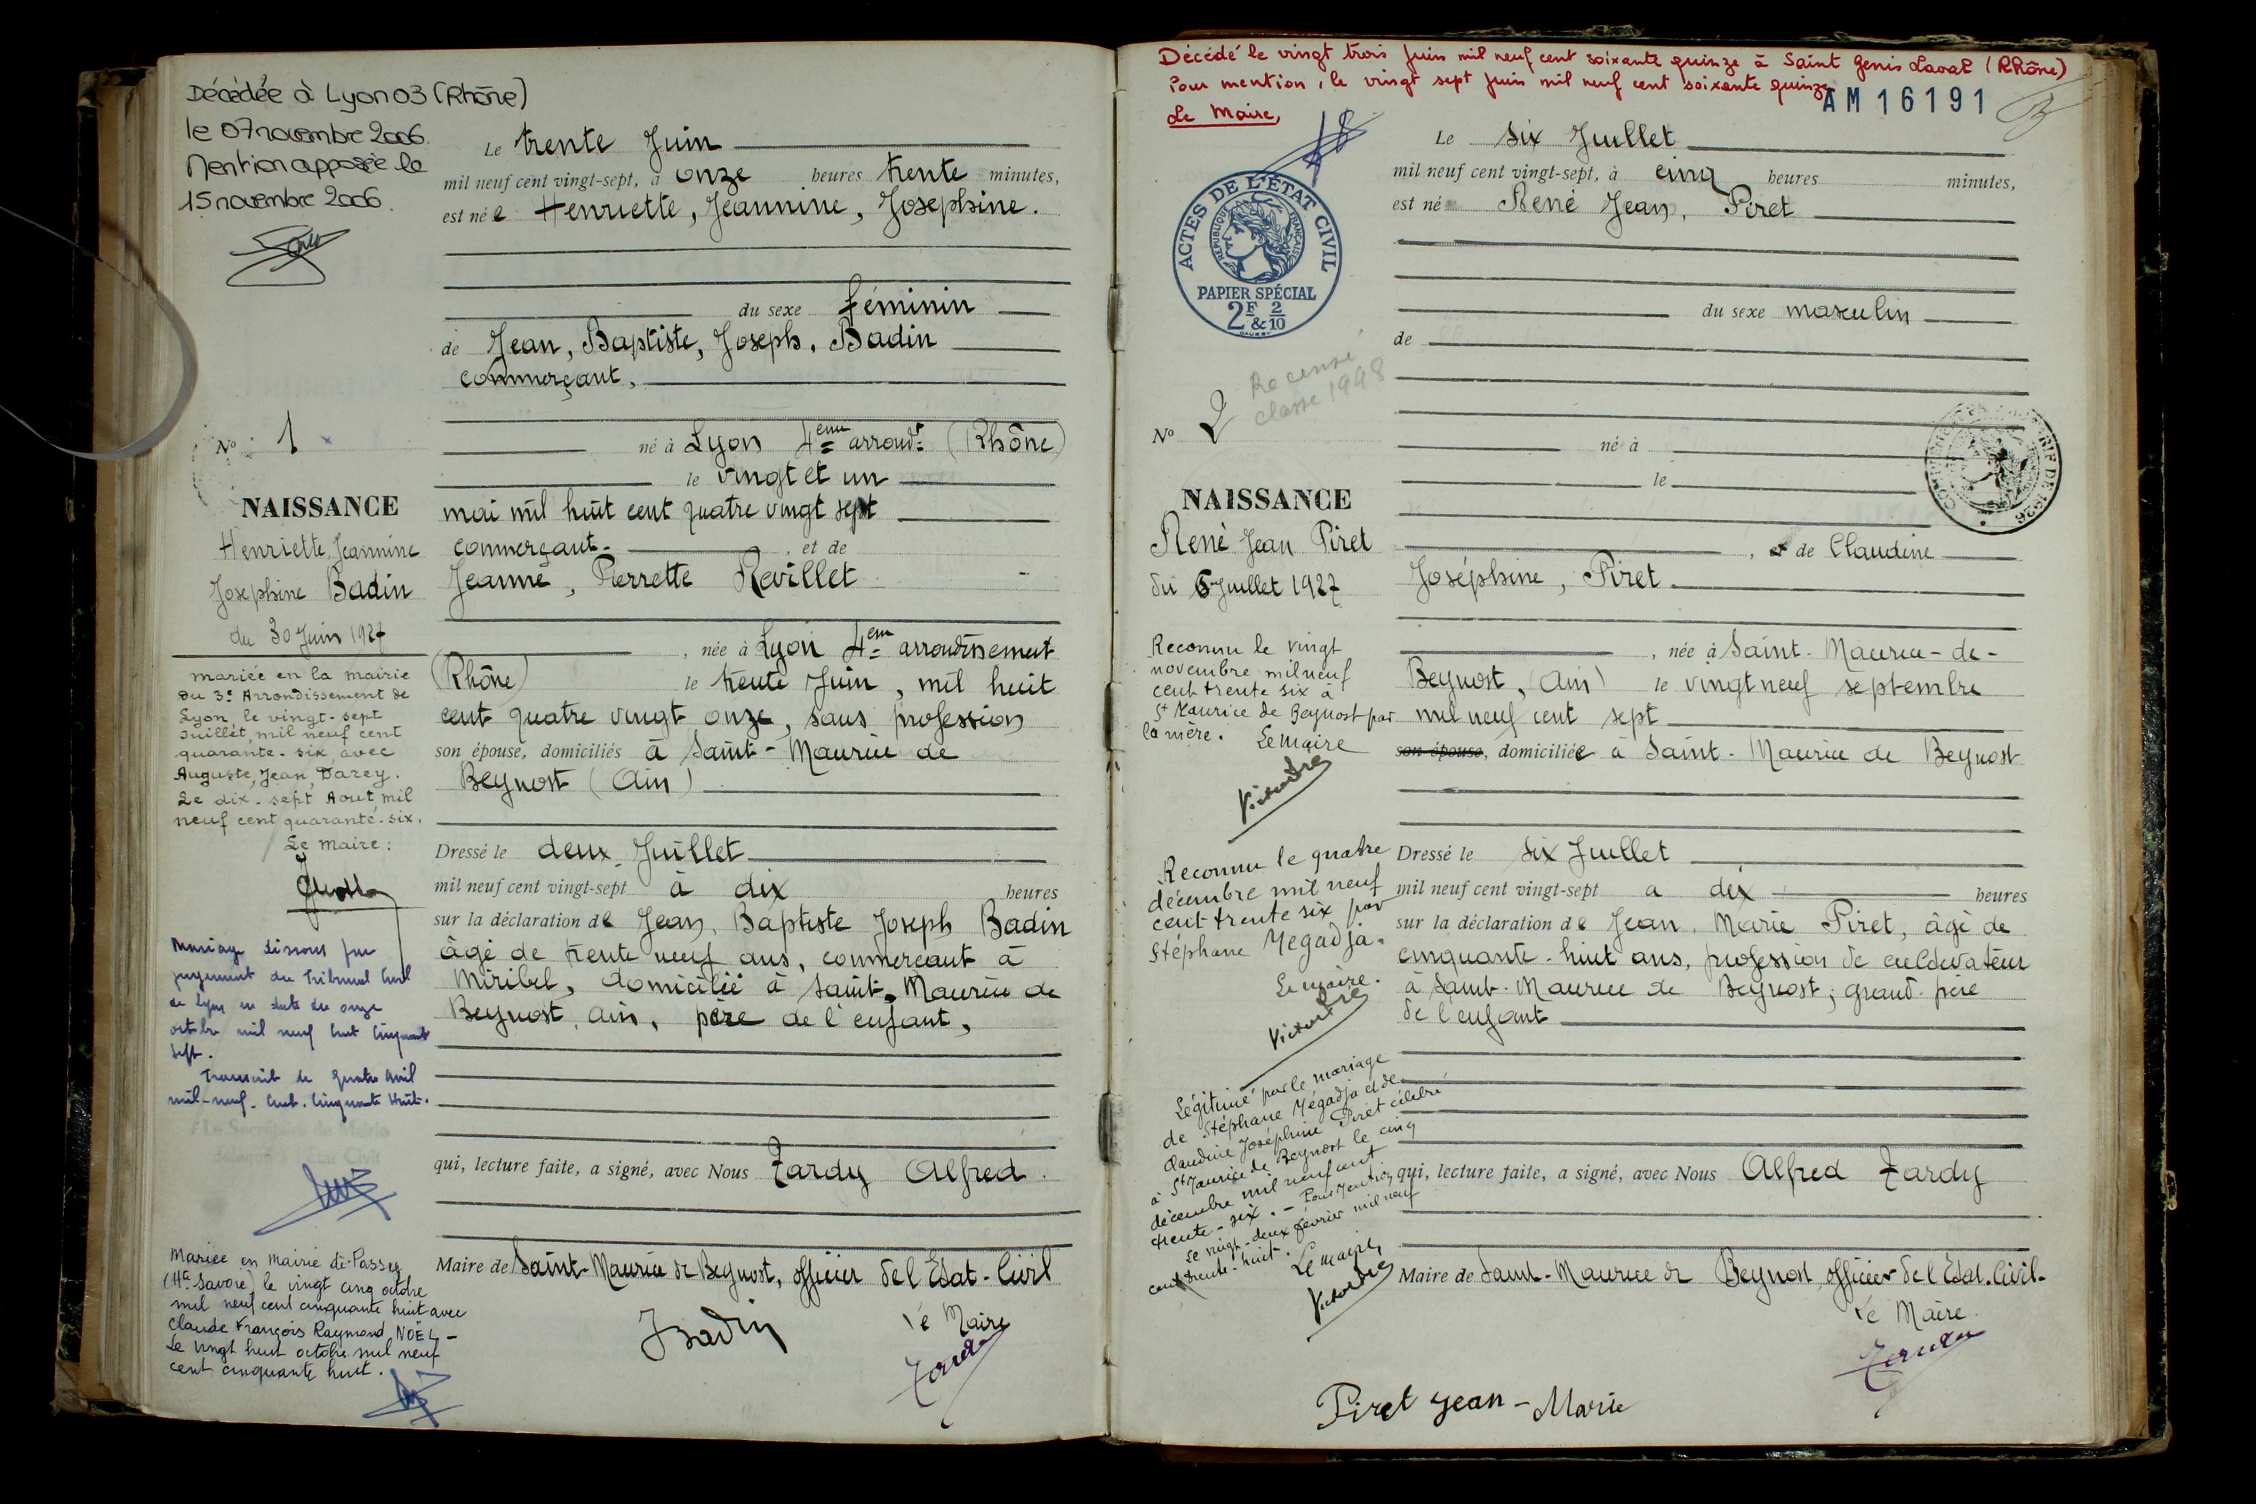 Décédée à Lyon 03 (Rhône)
le 07 novembre 2006.
Mention apposée le
15 novembre 2006.
Le trente Juin
mil neuf cent vingt-sept, à onze heures trente minutes,
est née Henriette, Jeannine, Josephine.
du sexe féminin
de Jean, Baptiste, Joseph, Badin
commerçant,
né à Lyon 4ème arrondt (Rhône)
le vingt et un
mai mil huit cent quatre vingt sept
commerçant. , et de
Jeanne, Pierrette Revillet
, née à Lyon 4em arrondissement
(Rhône) le trente Juin, mil huit
cent quatre vingt onze, sans profession
son épouse, domiciliés à Saint-Maurice de
Beynost (Ain)
Dressé le deux Juillet
mil neuf cent vingt-sept à dix heures
sur la déclaration de Jean, Baptiste Joseph Badin
âgé de trente neuf ans, commerçant à
Miribel, domicilié à Saint-Maurice de
Beynost, ain, père de l'enfant,
qui, lecture faite, a signé, avec Nous Tardy Alfred.
Maire de Saint-Maurice de Beynost, officier de l'Etat-Civil
Badin
Le Maire
Tardy
No 1
NAISSANCE
Henriette Jeannine
Josephine Badin
du 30 Juin 1927
mariée en la mairie
du 3e Arrondissement de
Lyon, le vingt-sept
Juillet, mil neuf cent
quarante-six, avec
Auguste, Jean, Darey.
Le dix-sept Aout, mil
neuf cent quarante-six.
Le Maire:
Mariage dissous par
jugement du Tribunal Civil
de Lyon en date du onze
octobre mil neuf cent cinquante
sept.
Transcrit le quatre avril
mil-neuf-cent-cinquante huit.
Le Secrétaire de Mairie
délégué à l'Etat Civil
Mariée en mairie de Passy
(Hte Savoie) le vingt cinq octobre
mil neuf cent cinquante huit avec
Claude François Raymond NOËL -
Le vingt huit octobre mil neuf
cent cinquante huit.
Décédé le vingt trois Juin mil neuf cent soixante quinze à Saint Genis Laval (Rhône)
Pour mention, le vingt sept Juin mil neuf cent soixante quinze
Le Maire,
AM16191
ACTES DE L'ÉTAT CIVIL
RÉPUBLIQUE FRANÇAISE
PAPIER SPÉCIAL
2F & 2/10
Le six Juillet
mil neuf cent vingt-sept, à cinq heures minutes,
est né René Jean, Piret
du sexe masculin
de
né à
le
, et de Claudine
Joséphine, Piret
, née à Saint-Maurice-de-
Beynost, (Ain) le vingt neuf septembre
mil neuf cent sept
son épouse, domiciliée à Saint-Maurice de Beynost
Dressé le six Juillet
mil neuf cent vingt-sept a dix heures
sur la déclaration de Jean, Marie Piret, âgé de
cinquante-huit ans, profession de cultivateur
à Saint-Maurice de Beynost, grand-père
de l'enfant
qui, lecture faite, a signé, avec Nous Alfred Tardy
Maire de Saint-Maurice de Beynost, officier de l'Etat-Civil-
Le Maire
Tardy
Piret Jean-Marie
Recensé
classe 1948
No 2
NAISSANCE
René Jean Piret
du 6 Juillet 1927
Reconnu le vingt
novembre mil neuf
cent trente six à
St Maurice de Beynost par
la mère. Le maire
Reconnu le quatre
décembre mil neuf
cent trente six par
Stéphane Mégadja.
Le maire.
Légitimé par le mariage
de Stéphane Mégadja et de
Claudine Joséphine Piret célébré
à St Maurice de Beynost le cinq
décembre mil neuf cent
trente-six.- Pour Mention,
le vingt-deux février mil neuf
cent trente-huit.
Le maire,